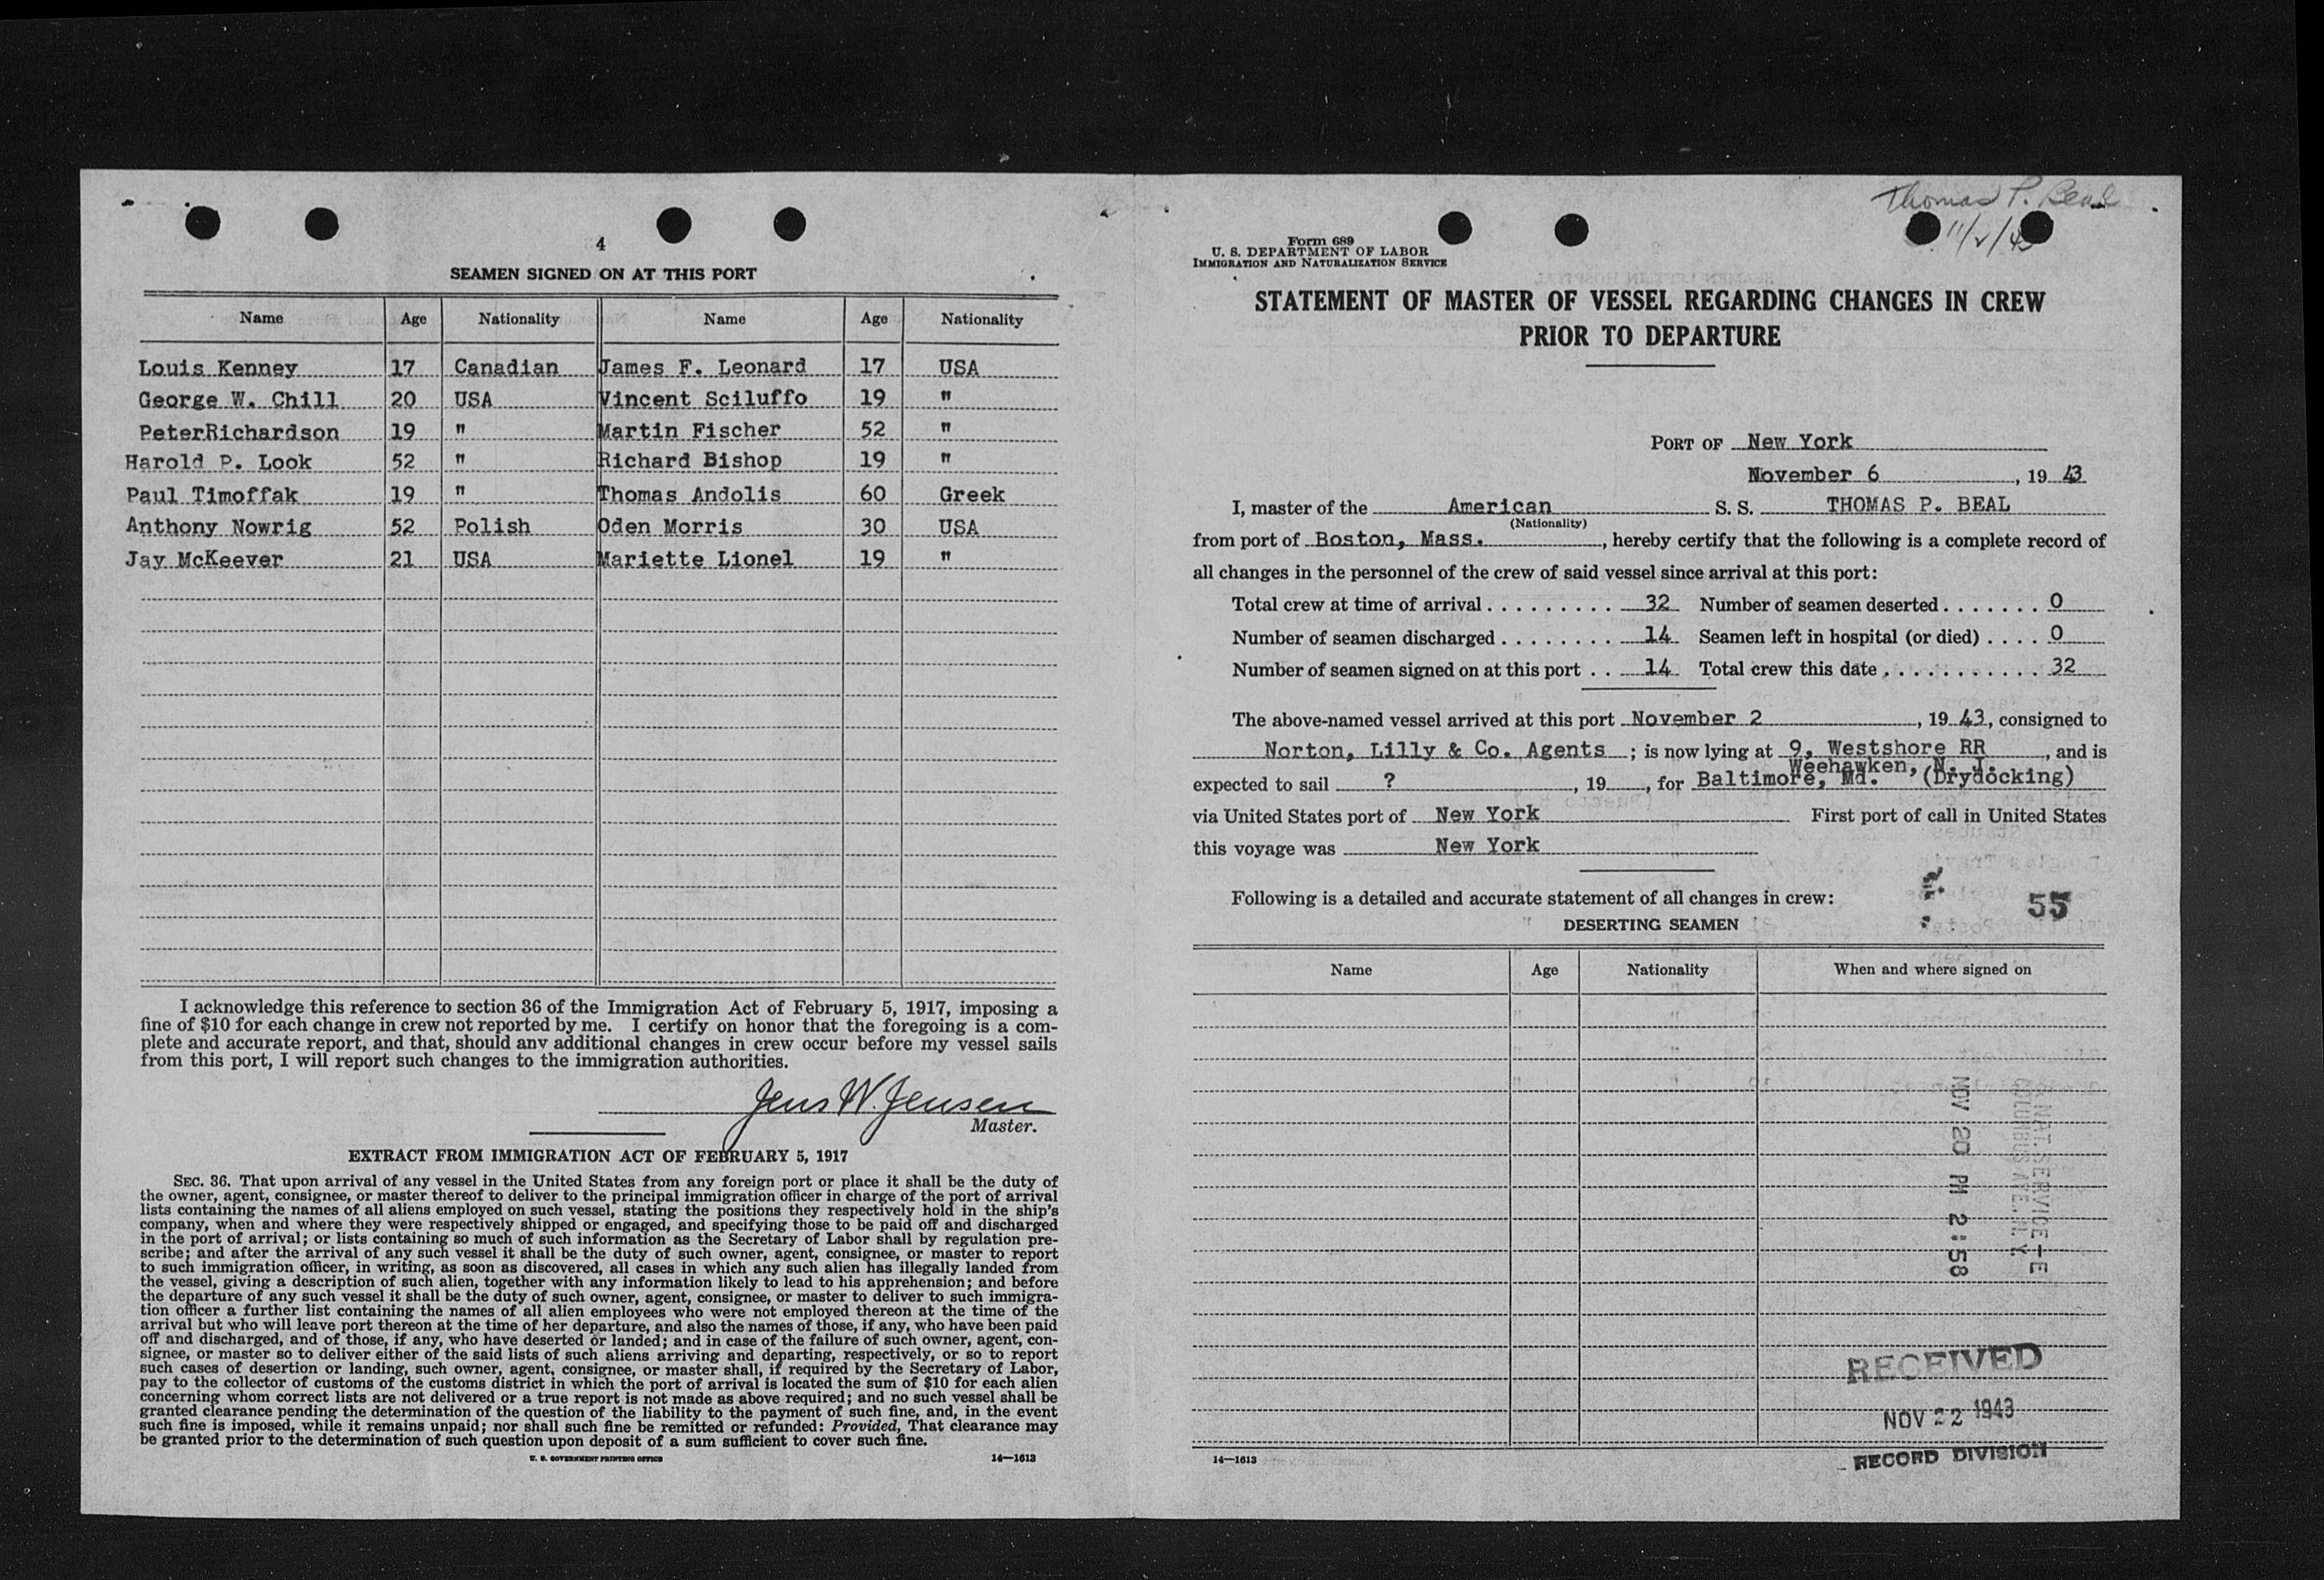 4
SEAMEN SIGNED ON AT THIS PORT
Name Age Nationality Name Age Nationality
Louis Kenney 17 Canadian James F. Leonard 17 USA
George W. Chill 20 USA Vincent Sciluffo 19 "
PeterRichardson 19 " Martin Fischer 52 "
Harold P. Look 52 " Richard Bishop 19 "
Paul Timoffak 19 " Thomas Andolis 60 Greek
Anthony Nowrig 52 Polish Oden Morris 30 USA
Jay McKeever 21 USA Mariette Lionel 19 "
I acknowledge this reference to section 36 of the Immigration Act of February 5, 1917, imposing a
fine of $10 for each change in crew not reported by me. I certify on honor that the foregoing is a com-
plete and accurate report, and that, should any additional changes in crew occur before my vessel sails
from this port, I will report such changes to the immigration authorities.
Jens W. Jensen
Master.
EXTRACT FROM IMMIGRATION ACT OF FEBRUARY 5, 1917
SEC. 36. That upon arrival of any vessel in the United States from any foreign port or place it shall be the duty of
the owner, agent, consignee, or master thereof to deliver to the principal immigration officer in charge of the port of arrival
lists containing the names of all aliens employed on such vessel, stating the positions they respectively hold in the ship's
company, when and where they were respectively shipped or engaged, and specifying those to be paid off and discharged
in the port of arrival; or lists containing so much of such information as the Secretary of Labor shall by regulation pre-
scribe; and after the arrival of any such vessel it shall be the duty of such owner, agent, consignee, or master to report
to such immigration officer, in writing, as soon as discovered, all cases in which any such alien has illegally landed from
the vessel, giving a description of such alien, together with any information likely to lead to his apprehension; and before
the departure of any such vessel it shall be the duty of such owner, agent, consignee, or master to deliver to such immigra-
tion officer a further list containing the names of all alien employees who were not employed thereon at the time of the
arrival but who will leave port thereon at the time of her departure, and also the names of those, if any, who have been paid
off and discharged, and of those, if any, who have deserted or landed; and in case of the failure of such owner, agent, con-
signee, or master so to deliver either of the said lists of such aliens arriving and departing, respectively, or so to report
such cases of desertion or landing, such owner, agent, consignee, or master shall, if required by the Secretary of Labor,
pay to the collector of customs of the customs district in which the port of arrival is located the sum of $10 for each alien
concerning whom correct lists are not delivered or a true report is not made as above required; and no such vessel shall be
granted clearance pending the determination of the question of the liability to the payment of such fine, and, in the event
such fine is imposed, while it remains unpaid; nor shall such fine be remitted or refunded: Provided, That clearance may
be granted prior to the determination of such question upon deposit of a sum sufficient to cover such fine.
U. S. GOVERNMENT PRINTING OFFICE 14—1613
Thomas P. Beal
11/2/43
Form 689
U. S. DEPARTMENT OF LABOR
IMMIGRATION AND NATURALIZATION SERVICE
STATEMENT OF MASTER OF VESSEL REGARDING CHANGES IN CREW
PRIOR TO DEPARTURE
PORT OF New York
November 6, 1943
I, master of the American S. S. THOMAS P. BEAL
(Nationality)
from port of Boston, Mass., hereby certify that the following is a complete record of
all changes in the personnel of the crew of said vessel since arrival at this port:
Total crew at time of arrival . . . . . . . . . 32 Number of seamen deserted . . . . . . . 0
Number of seamen discharged . . . . . . . . 14 Seamen left in hospital (or died) . . . . 0
Number of seamen signed on at this port . . 14 Total crew this date . . . . . . . . . . . 32
The above-named vessel arrived at this port November 2, 1943, consigned to
Norton, Lilly & Co. Agents ; is now lying at 9, Westshore RR, and is
Weehawken, N. J.
expected to sail ?, 19, for Baltimore, Md. (Drydocking)
via United States port of New York First port of call in United States
this voyage was New York
Following is a detailed and accurate statement of all changes in crew:
55
DESERTING SEAMEN
Name Age Nationality When and where signed on
NOV 20 PM 2:58
NAT. SERVICE-E
COLUMBUS AVE. N.Y.
RECEIVED
NOV 22 1943
RECORD DIVISION
14—1613